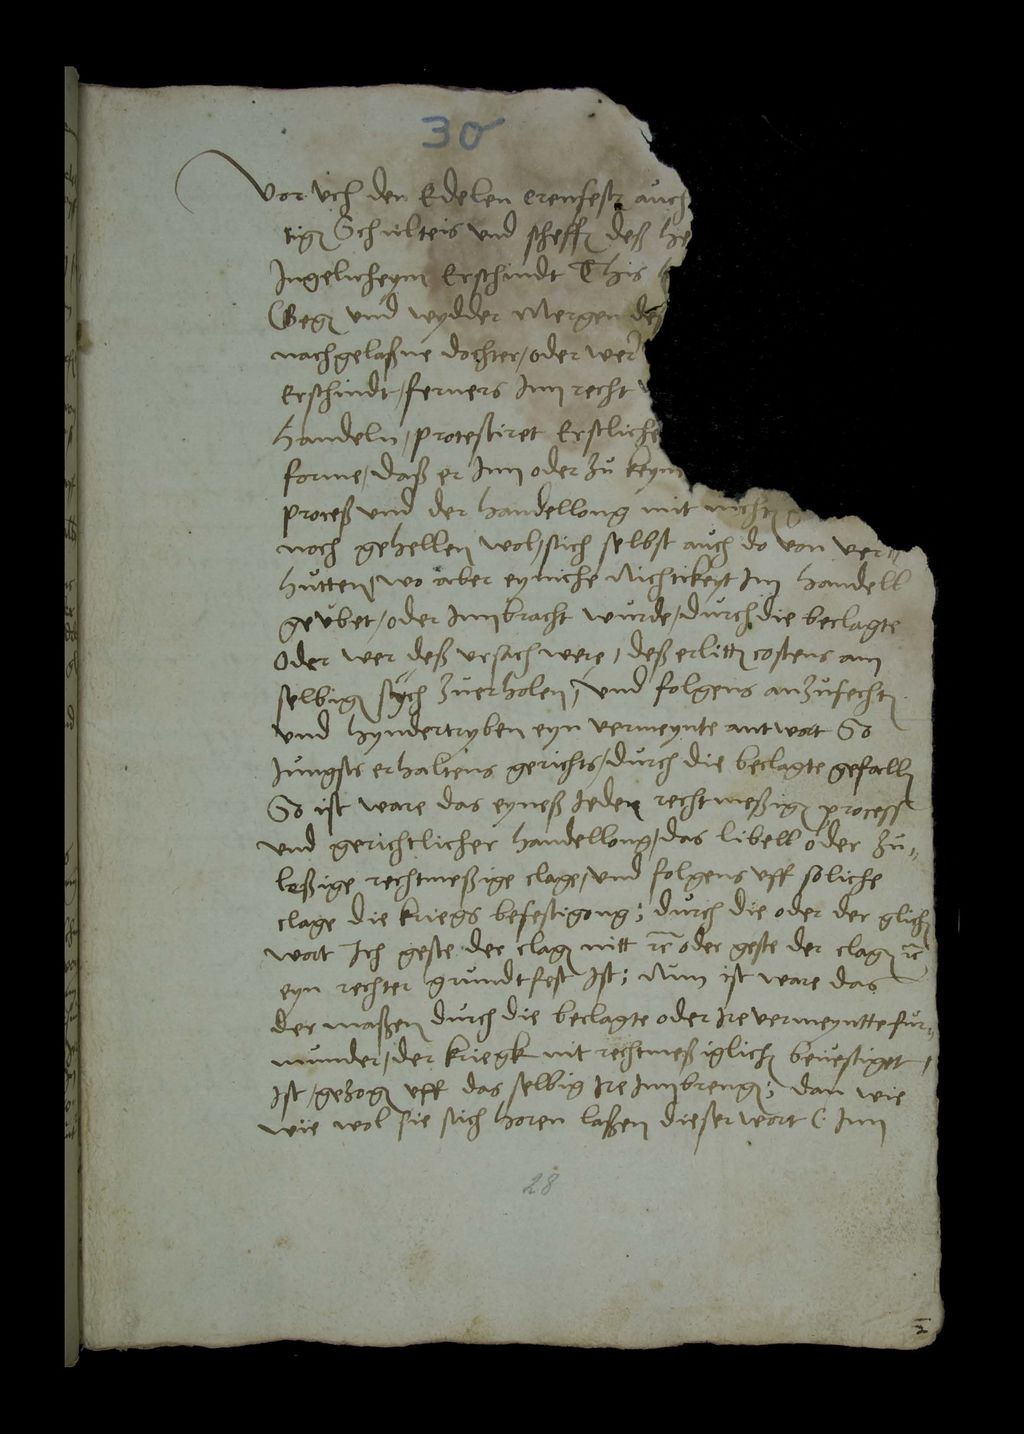 30
Vor vch den Edelen erenfest auch
tig Schulteis vnd scheff deß he
Ingelicheym Erschindt This
Geg vnd wydder Mergen de
nachgelaßne dochter / oder wer
Erschindt / ferners Inn recht
handeln / protestiret Erstliche
forme / daß er Inn oder zu keym
proceß vnd der handellong mit nicht
noch gehellen wol / sich selbst auch do von ver„
hutten / wo aber eyniche Nichtikeyt Im handell
geubet / oder Innbracht wurde / durch die beclagte
Oder wer deß vrsach were / deß erlitt costens am
selbig sich zuerholen / Vnd folgens anzufecht
vnd hyndertryben eyn vermeynte antwort So
Jungst erhaltens gerichts / durch die beclagte gefall
So ist ware das eyneß Jeden rechtmeßig process
vnd gerichtlicher handellong / das libell oder zu„
leßige rechtmeßige clage / vnd folgens vff soliche
clage die kriegs befestigong ; durch die oder der glich
wort Ich geste der clag nitt rc oder geste der clag rc
eyn rechter grundtfest Ist ; Nun ist ware das
der maßen durch die beclagte oder Ire vermeyntte fur„
munder / der kriegk nit rechtmeßiglich beuestiget /
Ist / gezog vff das selbig Ire Innbreng ; dan wie
wie wol sie sich horen laßen dieser wort (: Inn
28